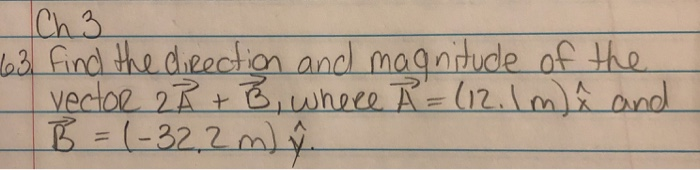 Ch 3
63. Find the direction and magnitude of the
vector 2A⃗ + B⃗, where A⃗ = (12.1m) x̂ and
B⃗ = (-32.2 m) ŷ.